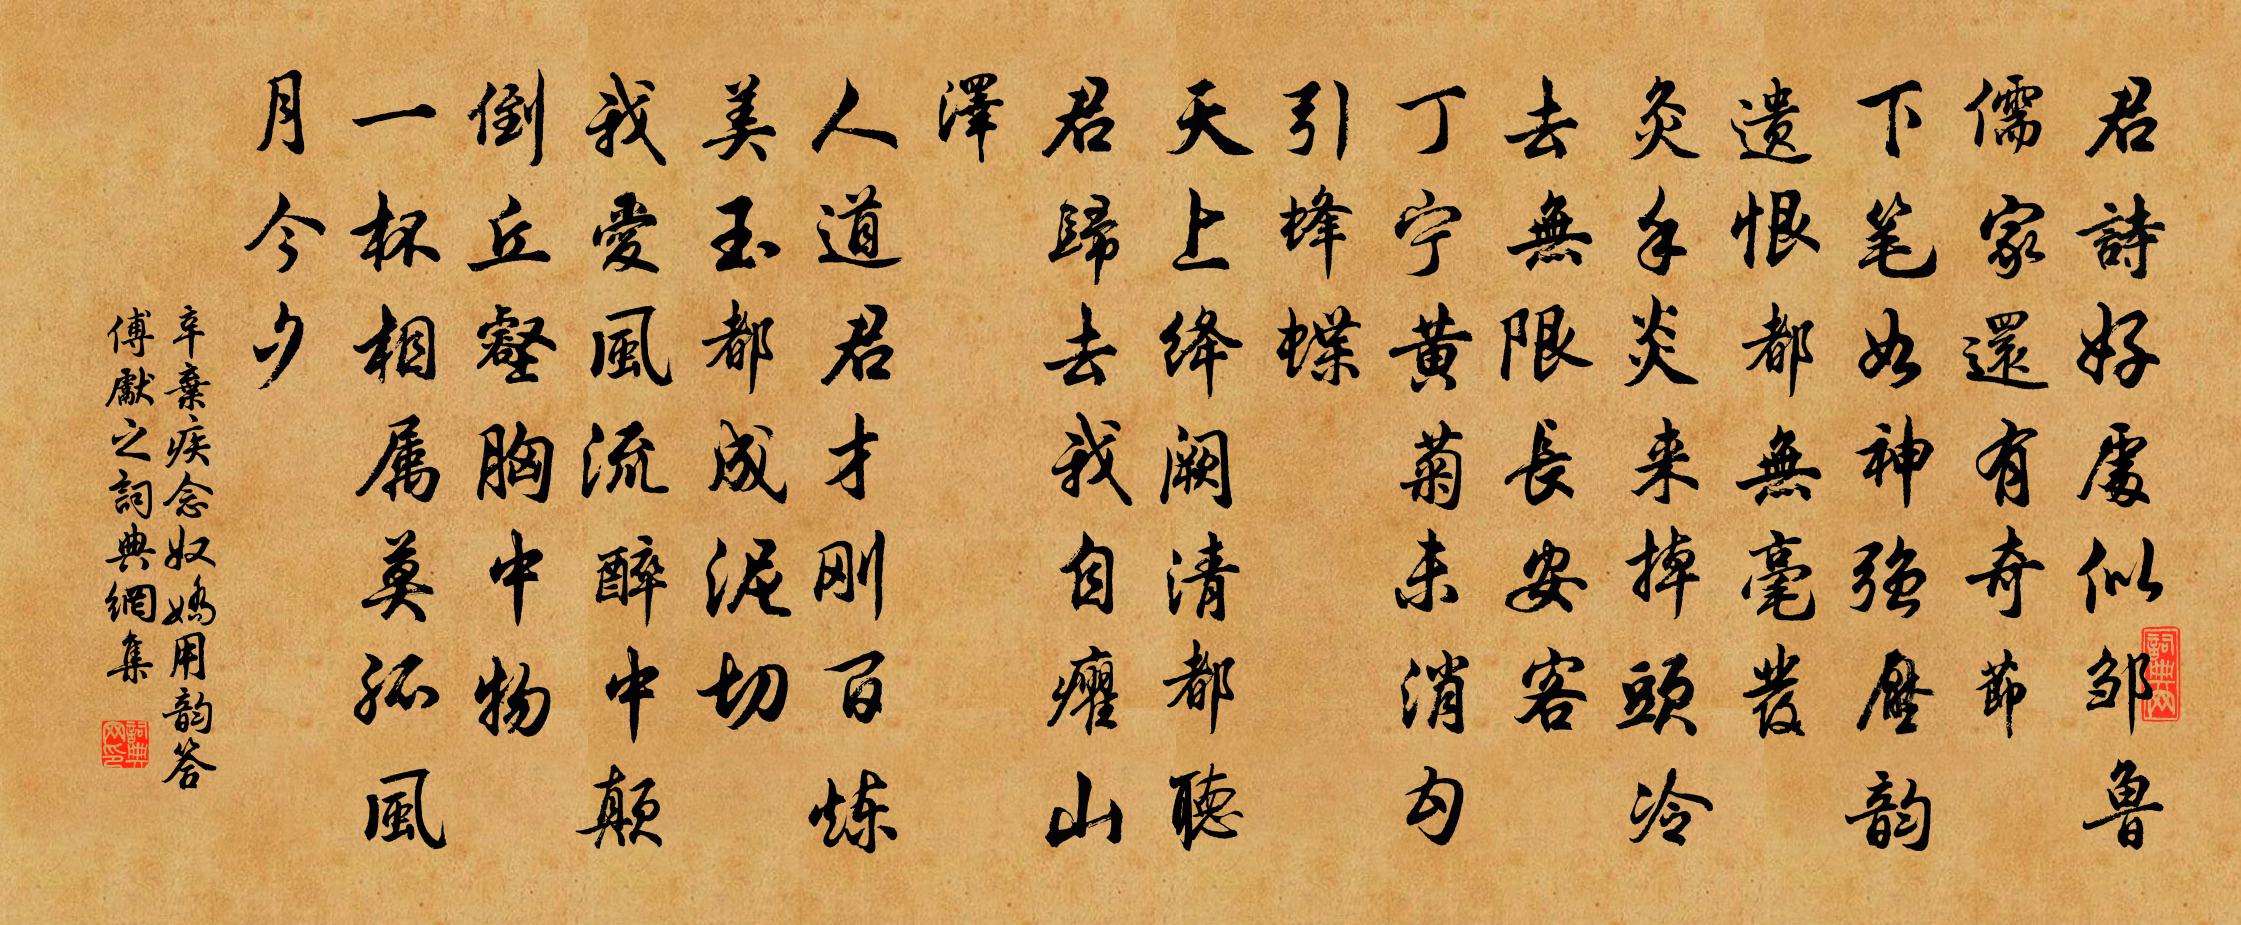 君詩好處似邹魯
儒家還有奇節
下笔如神强壓韵
遗恨都無毫發
灸手炎来掉頭冷
去無限長安客
丁宁黄菊未消勾
引蜂蝶
天上绛阙清都聽
君歸去我自癯山
澤
人道君才刚百炼
美玉都成泥切
我愛風流醉中颠
倒丘壑胸中物
一杯相属莫孤風
月今夕
辛棄疾念奴嬌用韵答
傅獻之詞典網集
詞典网
詞典网印